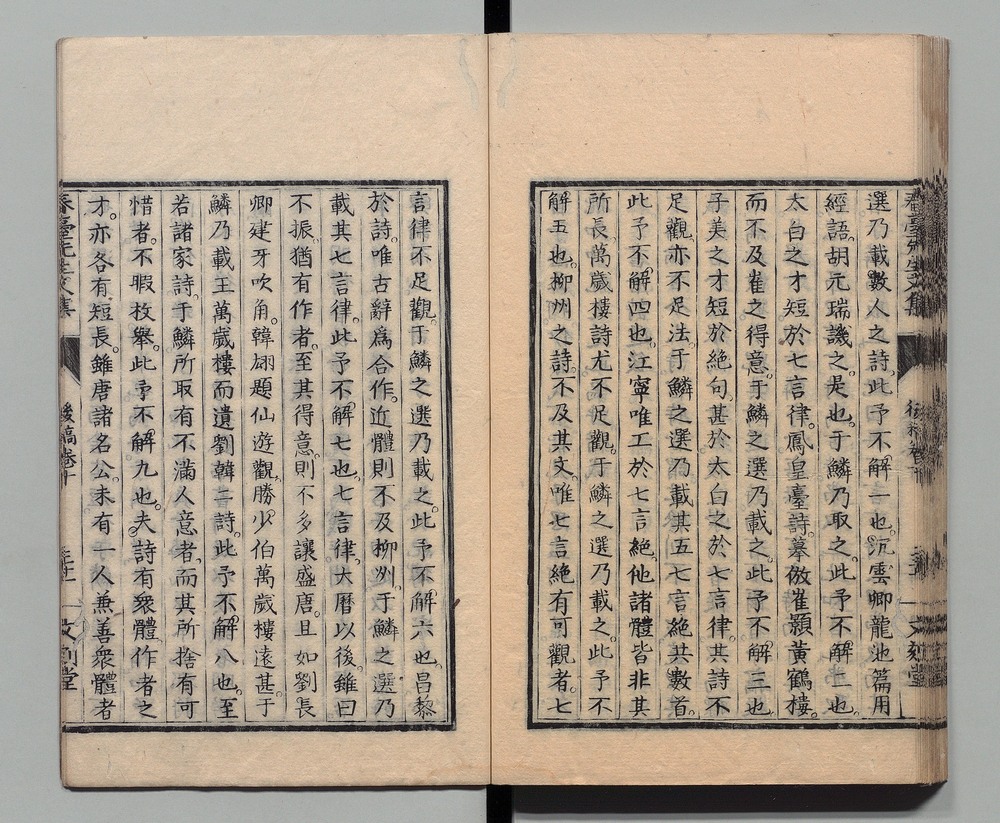 選乃載數人之詩。此予不解一也。沉雲卿龍池篇用
經語。胡元瑞譏之。是也。于鱗乃取之。此予不解二也。
太白之才短於七言律。鳳皇臺詩。摹倣崔顥黃鶴樓。
而不及崔之得意。于鱗之選乃載之。此予不解三也
子美之才短於絕句。甚於太白之於七言律。其詩不
足觀。亦不足法。于鱗之選乃載其五七言絕共數首。
此予不解四也。江寧唯工於七言絕。他諸體皆非其
所長。萬歲樓詩尤不足觀。于鱗之選乃載之。此予不
解五也。柳州之詩。不及其文。唯七言絕有可觀者。七
言律不足觀。于鱗之選乃載之。此予不解六也。昌黎
於詩。唯古辭爲合作。近體則不及柳州。于鱗之選乃
載其七言律。此予不解七也。七言律。大曆以後。雖曰
不振。猶有作者。至其得意。則不多讓盛唐。且如劉長
卿建牙吹角。韓翃題仙遊觀。勝少伯萬歲樓遠甚。于
鱗乃載王萬歲樓而遺劉韓二詩。此予不解八也。至
若諸家詩。于鱗所取有不滿人意者。而其所捨有可
惜者。不暇枚舉。此予不解九也。夫詩有衆體。作者之
才。亦各有短長。雖唐諸名公。未有一人兼善衆體者
春臺先生文集
後稿卷十
文刻堂